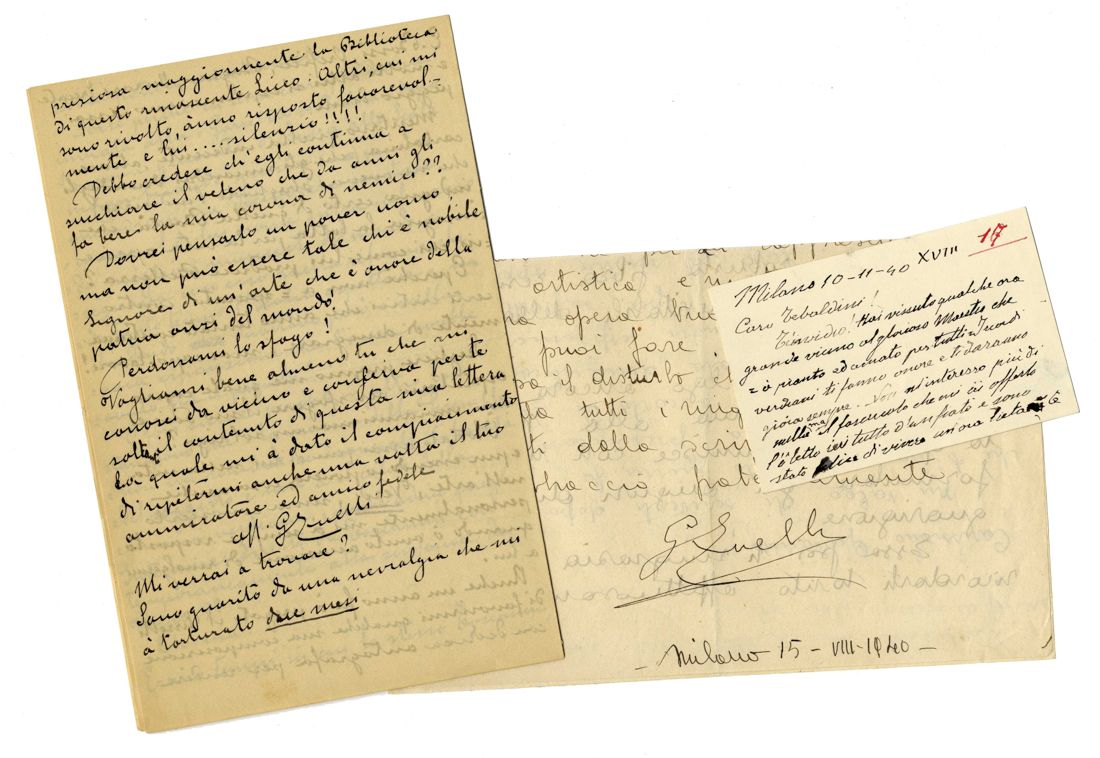 presiosa maggiormente la Biblioteca
di questo rinascente Liceo. Altri, cui mi
sono rivolto, ànno risposto favorevol-
mente e lui.... silenzio!!!!
Debbo credere ch'egli continua a
succhiare il veleno che da anni gli
fa bere la mia corona di nemici??
Dovrei pensarlo un pover uomo,
ma non può essere tale chi è nobile
Signore di un'arte che è onore della
patria anzi del mondo!
Perdonami lo sfogo!
Vogliami bene almeno tu che mi
conosci da vicino e conserva per te
solo il contenuto di questa mia lettera
la quale mi à dato il compiacimento
di ripetermi anche una volta il tuo
ammiratore ed amico fedele
aff. GZuelli
Mi verrai a trovare?
Sono guarito da una nevralgia che mi
à torturato due mesi
artistica e
opera
puoi fare
il disturbo e
tutti i
dalla
GZuelli
- Milano 15 - VIII - 1940 -
17
Milano 10-11-40 XVIII
Caro Tebaldini!
T'invidio. Hai vissuto qualche ora
grande vicino al glorioso Maestro che
è pianto ed amato per tutti i Ricordi
verdiani ti fanno onore e ti daranno
gioia sempre. Non mi interessò più di
il fascicolo che mi ài offerto
l'ò letto ieri tutto d'un fiato e sono
stato felice di vivere un'ora